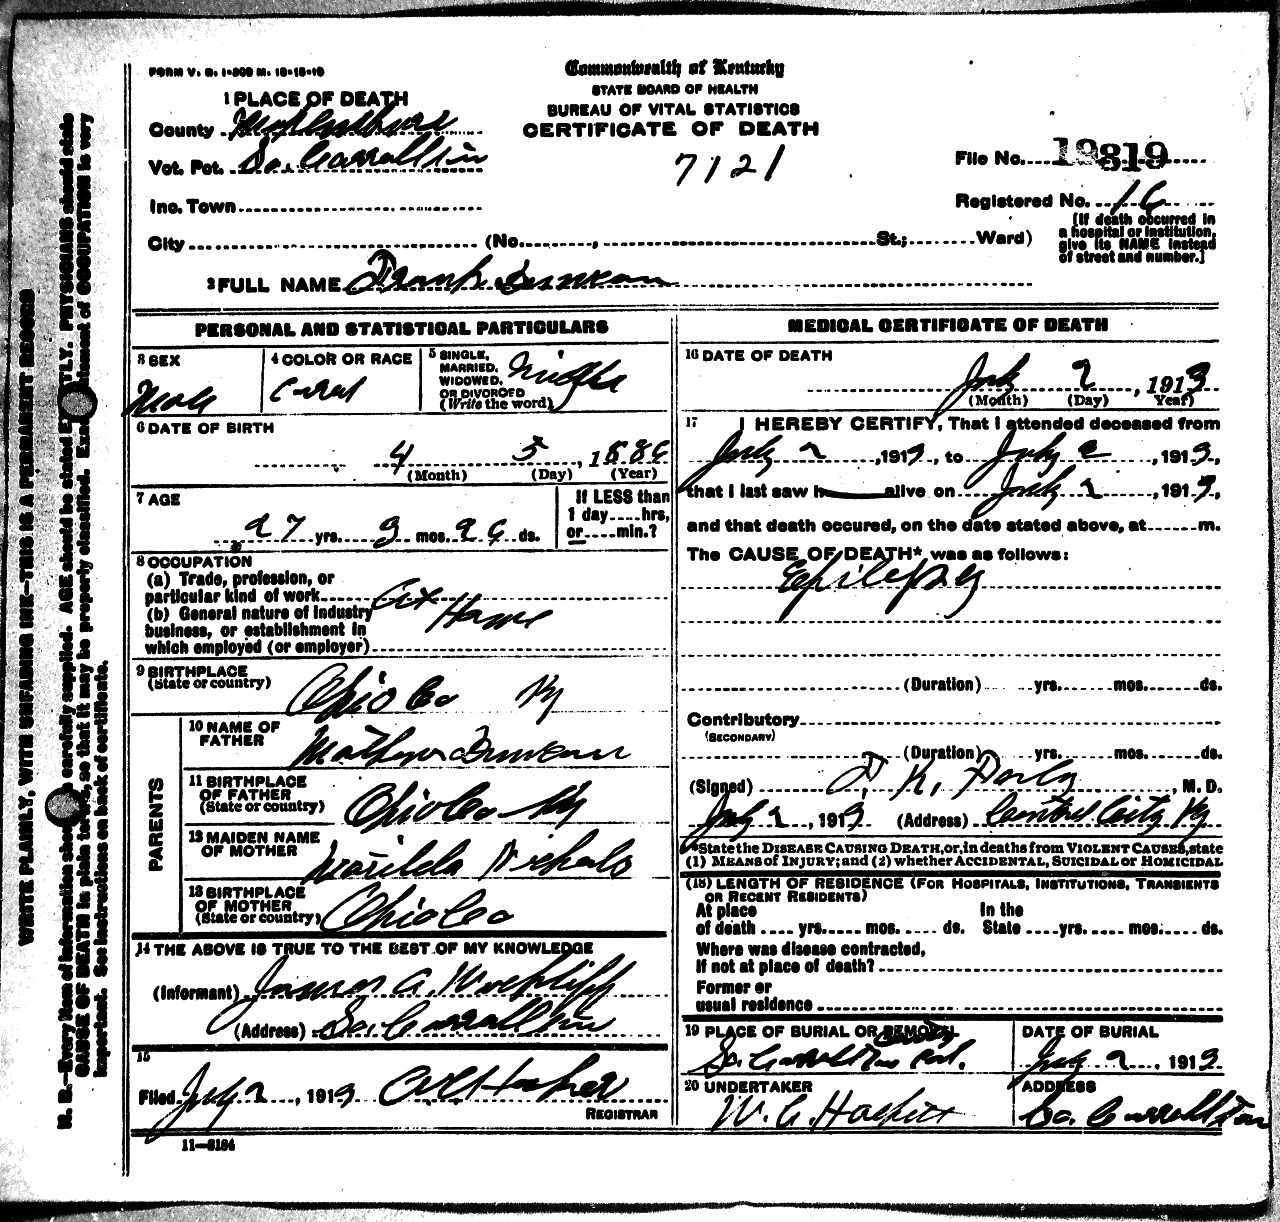 FORM V. S. 1-300 M. 12-12-10
Commonwealth of Kentucky
STATE BOARD OF HEALTH
BUREAU OF VITAL STATISTICS
CERTIFICATE OF DEATH
7121
1 PLACE OF DEATH
County Muhlenburg
Vot. Pct. So. Carrollton
Inc. Town
City (No. , St.; Ward)
File No. 19319
Registered No. 16
[If death occurred in
a hospital or institution,
give its NAME instead
of street and number.]
2 FULL NAME Frank Duncan
PERSONAL AND STATISTICAL PARTICULARS
3 SEX
Male
4 COLOR OR RACE
5 SINGLE,
MARRIED,
WIDOWED,
OR DIVORCED
(Write the word)
Single
6 DATE OF BIRTH
4 5 , 1886
(Month) (Day) (Year)
7 AGE
27 yrs. 3 mos. 26 ds.
If LESS than
1 day hrs,
or min.?
8 OCCUPATION
(a) Trade, profession, or
particular kind of work At
(b) General nature of industry Home
business, or establishment in
which employed (or employer)
9 BIRTHPLACE
(State or country)
Ohio Co Ky
PARENTS
10 NAME OF
FATHER
Duncan
11 BIRTHPLACE
OF FATHER
(State or country)
Ohio Co Ky
12 MAIDEN NAME
OF MOTHER
Nichols
13 BIRTHPLACE
OF MOTHER
(State or country)
Ohio Co
14 THE ABOVE IS TRUE TO THE BEST OF MY KNOWLEDGE
(Informant) James A.
(Address) So. Carrollton
15
Filed July 2 , 1913
REGISTRAR
11—3184
MEDICAL CERTIFICATE OF DEATH
16 DATE OF DEATH
July 2 , 1913
(Month) (Day) Year)
17 I HEREBY CERTIFY, That I attended deceased from
July 2 , 1913, to July 2 , 1913,
that I last saw h alive on July 2 , 1913,
and that death occured, on the date stated above, at m.
The CAUSE OF DEATH* was as follows:
Epilepsy
(Duration) yrs. mos. ds.
Contributory
(SECONDARY)
(Duration) yrs. mos. ds.
(Signed) , M. D.
July 2 , 1913 (Address) Central City Ky
*State the DISEASE CAUSING DEATH, or, in deaths from VIOLENT CAUSES, state
(1) MEANS of INJURY; and (2) whether ACCIDENTAL, SUICIDAL or HOMICIDAL
(18) LENGTH OF RESIDENCE (FOR HOSPITALS, INSTITUTIONS, TRANSIENTS
OR RECENT RESIDENTS)
At place In the
of death yrs. mos. ds. State yrs. mos. ds.
Where was disease contracted,
If not at place of death?
Former or
usual residence
19 PLACE OF BURIAL OR REMOVAL
So. Carrollton
DATE OF BURIAL
July 2 , 1913
20 UNDERTAKER
W. C.
ADDRESS
So. Carrollton
WRITE PLAINLY, WITH UNFADING INK—THIS IS A PERMANENT RECORD
N. B.—Every item of information should be carefully supplied. AGE should be stated EXACTLY. PHYSICIANS should state
CAUSE OF DEATH in plain terms, so that it may be properly classified. Exact statement of OCCUPATION is very
important. See instructions on back of certificate.